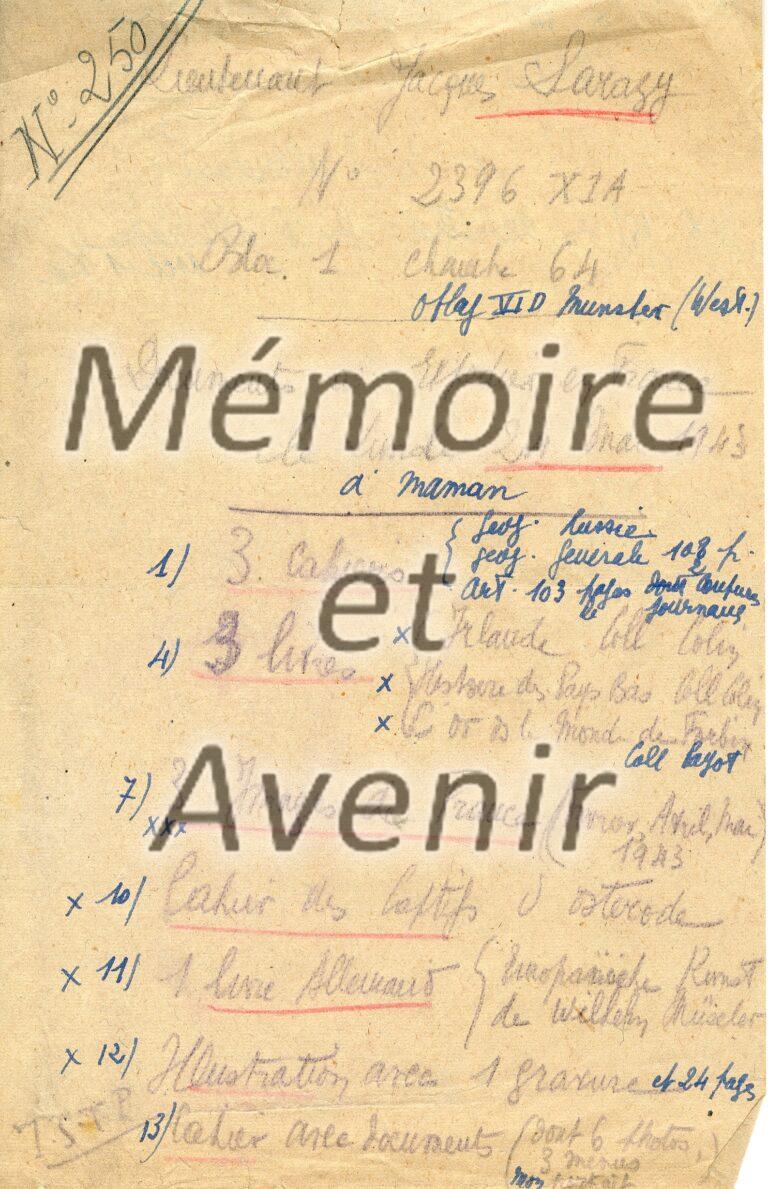 N° 250
Lieutenant Jacques Sarazy
N° 2396 XIA
Bloc 1 chambre 64
Oflag VI D Munster (West.)
Documents en France
le lundi 24 Mai 1943
à maman
1) 3 cahiers { geog. Russie
geog. générale 108 p.
Art. 103 pages dont coupures
journaux
4) 3 livres x Irlande Coll Colin
x Histoire des Pays Bas Coll Colin
x L'or ds le Monde de Forbin
Coll Payot
7) 3 Images de France (Avril, Mai)
xxx 1943
x 10) Cahier des Captifs d'Osterode
x 11) 1 livre Allemand { Europäische Kunst
de Wilhelm Müseler
x 12) Illustration avec 1 gravure et 24 pages
TSTP
13) Cahier avec documents (dont 6 photos,
3 menus
mon portrait
Mémoire
et
Avenir